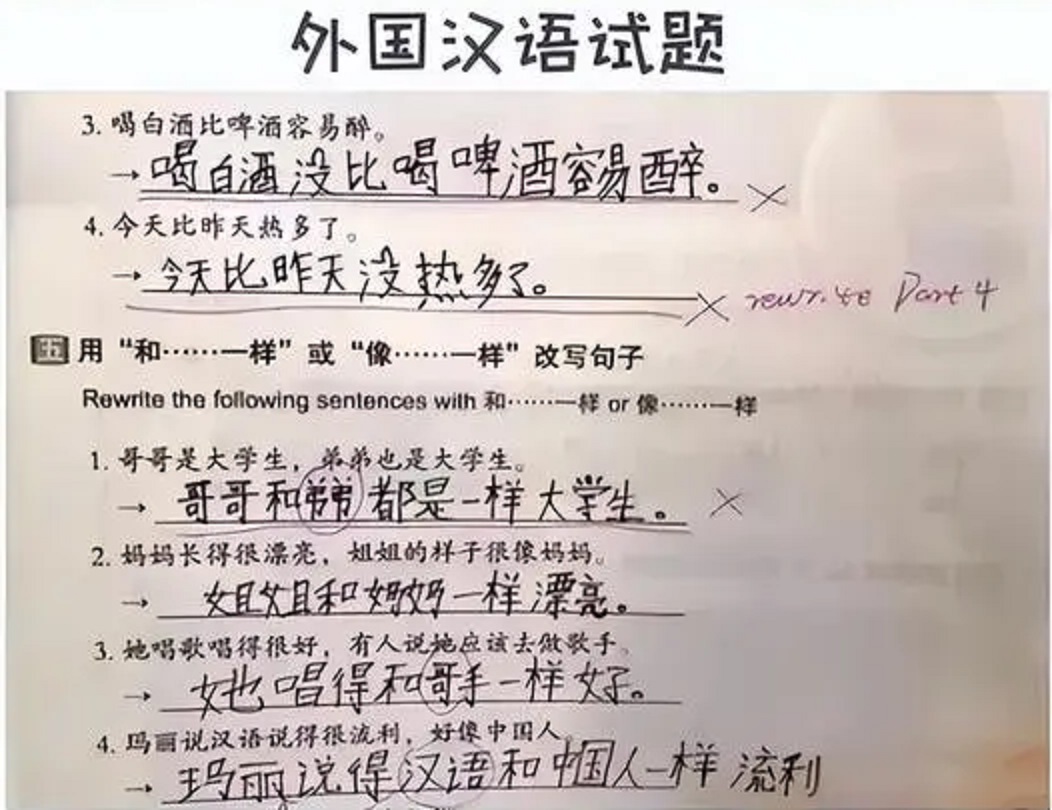 外国汉语试题
3. 喝白酒比啤酒容易醉。
→ 喝白酒没比喝啤酒容易醉。
4. 今天比昨天热多了。
→ 今天比昨天没热多了。
rewrite Part 4
五 用“和……一样”或“像……一样”改写句子
Rewrite the following sentences with 和……一样 or 像……一样
1. 哥哥是大学生，弟弟也是大学生。
→ 哥哥和弟弟都是一样大学生。
2. 妈妈长得很漂亮，姐姐的样子很像妈妈。
→ 姐姐和妈妈一样漂亮。
3. 她唱歌唱得很好，有人说她应该去做歌手。
→ 她唱得和哥手一样好。
4. 玛丽说汉语说得很流利，好像中国人。
→ 玛丽说得汉语和中国人一样流利